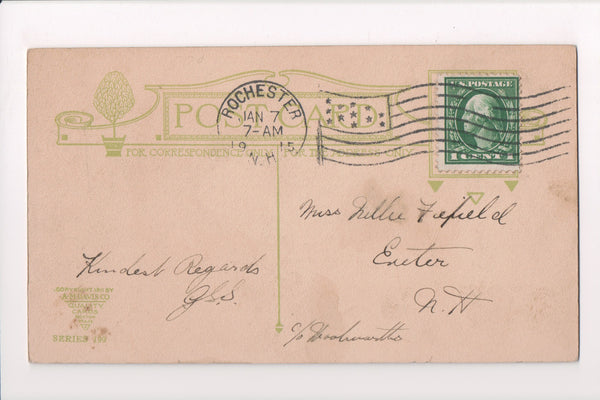 POST CARD
FOR CORRESPONDENCE ONLY
FOR THE ADDRESS ONLY
ROCHESTER
JAN 7
7-AM
1915
N.H.
U.S. POSTAGE
1 CENT 1
Miss Nellie Fifield
Exeter
N.H
c/o Woolworths
Kindest Regards
COPYRIGHT 1911 BY
A.M. DAVIS CO
QUALITY
CARDS
BOSTON
SERIES